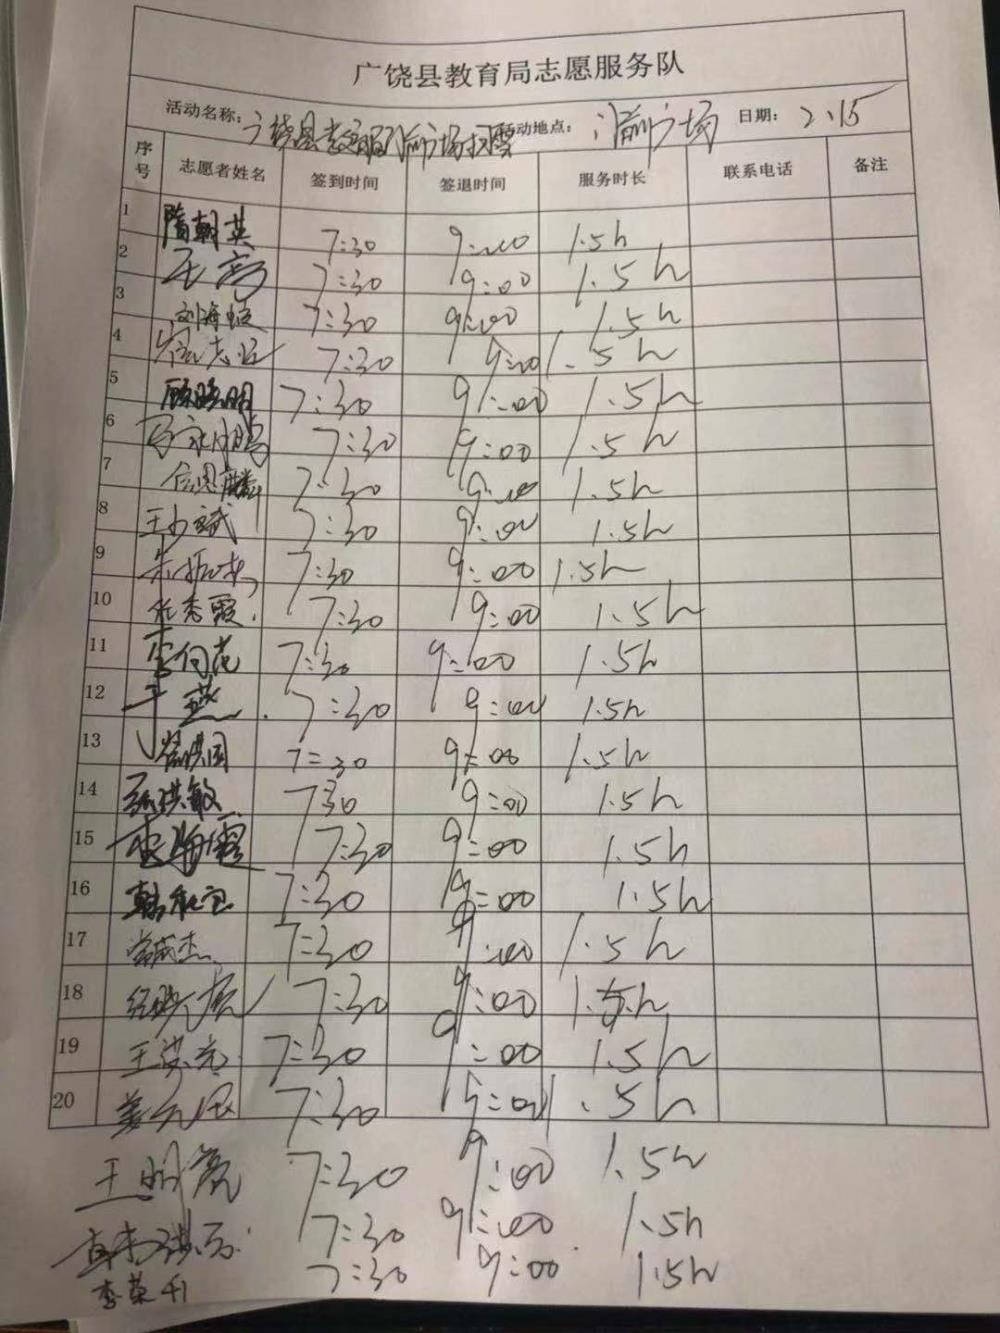 广饶县教育局志愿服务队
活动名称：广饶县 广场扫雪 活动地点： 广场 日期：2.15
序号 志愿者姓名 签到时间 签退时间 服务时长 联系电话 备注
1 隋朝英 7:30 9:00 1.5h
2 王亮 7:30 9:00 1.5h
3 刘海 7:30 9:00 1.5h
4 7:30 9:00 1.5h
5 顾晓明 7:30 9:00 1.5h
6 7:30 9:00 1.5h
7 7:30 9:00 1.5h
8 王少斌 7:30 9:00 1.5h
9 7:30 9:00 1.5h
10 任秀霞 7:30 9:00 1.5h
11 李向花 7:30 9:00 1.5h
12 于燕 7:30 9:00 1.5h
13 7:30 9:00 1.5h
14 张洪敏 7:30 9:00 1.5h
15 李海霞 7:30 9:00 1.5h
16 7:30 9:00 1.5h
17 7:30 9:00 1.5h
18 7:30 9:00 1.5h
19 7:30 9:00 1.5h
20 7:30 9:00 1.5h
王明亮 7:30 9:00 1.5h
7:30 9:00 1.5h
李荣升 7:30 9:00 1.5h